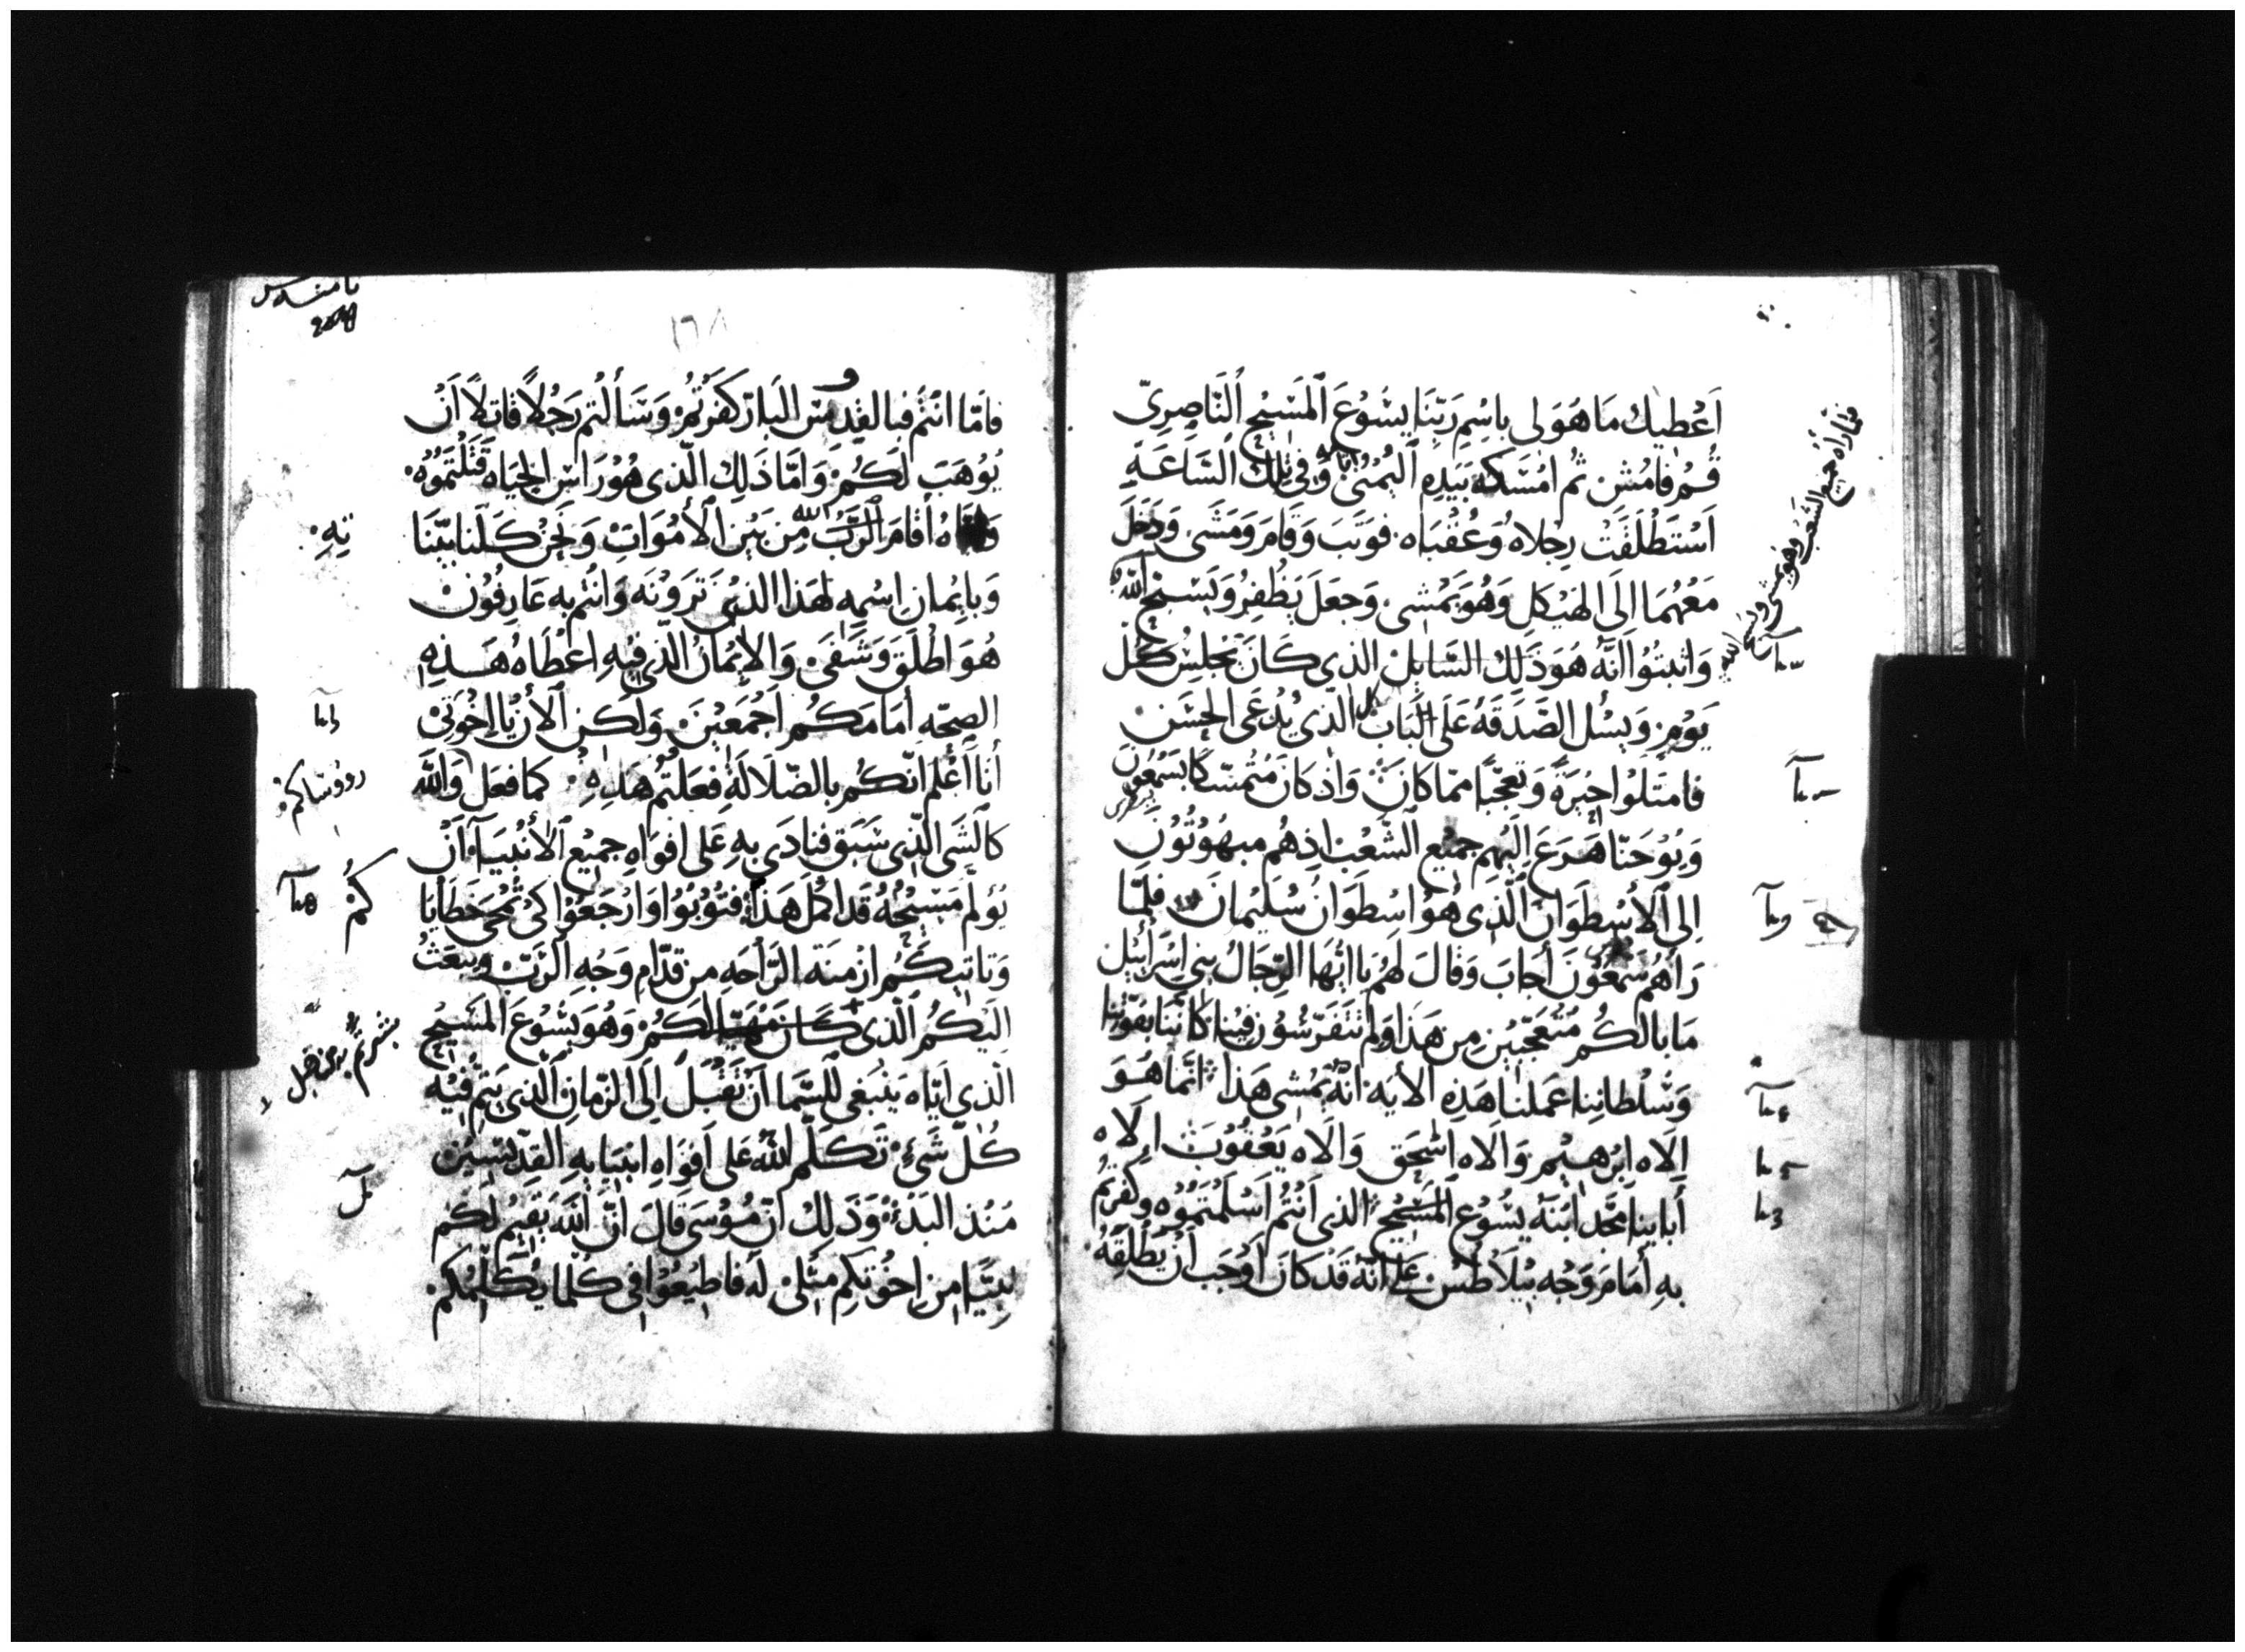 اَعْطيك مَا هُوَ لى باِسْمِ رَبّنَا يسَوُعَ اَلمَسَيْح اُلنَاصِرِىّ
قُمْ فامُشِ ثُم امْسَكه بَيَدِهِ اَليُمْنَىٰ وَفى تلِكَ السَاعَةِ
اَسْتَطْلَقَتْ رِجْلاهُ وَعُقْبَاه. فوَثبَ وَقَامَ وَمَشَى وَدَخَلَ
مَعَهُمَا اِلَى الهَيْكلِ وَهُوَ يَمْشى. وَجعَلَ يَطْفِرُ وَيَسَبّحُ اَللّه
وَاثبتوُا اَنّه هُوَ ذَلِكَ السَّايِلْ الذى كَانَ يَجْلِسُ كُلّ
يَوْمٍ وَيسُل الصَّدَقَهُ عَلَى اَلبَابِ الّذى يُدْعَى الحَسَن
فامتَلَوُا حَيْرَةً وَتعَجّبًا ممّا كَانَ وَاذ كَانَ مُتْمَسّكًا بسَمْعُونَ
وَيوُحَنّا هَرَعَ اِلَيْهِم جميْع الشَعْبْ اذِهُم مبهُوُتُونَ
اِلى اَلأسْطوَان اَلّذِى هُوَ اسْطوَانُ سُلَيْمانَ فلمّا
رَأهُم سَمْعُوُنَ أجابَ وَقالَ لهُم يَا ايُّهَا الرّجَالُ بنى اِسْرَائيْل
مَا بالكُم مُتَعَجّبيْنِ مِن هَذا وَلم تتَفَرّسُوُن فيْنا كَاننَا بقوّتنا
وَسُلْطاننِا عَملنْا هَذِهِ الأيه انّهُ يَمُشى هَذا انّما هُوَ
اِلَاه اِبْرُهِيْم وَالَاه اِسْحَق وَالَاه يَعْقُوبَ الَاه
أبايِنا مَجّد ابْنَهُ يسُوُع اَلمَسَيْح الذى اَنْتُم اَسْلَمْتموُه وكفرتُم
بهِ أمَامَ وَجْه بيْلَاطسْ عَلى انّهُ قَدْ كانَ اَوْجَبَ اَنْ يُطْلِقهُ
فلمّا رَاهُ جميْع الشَعْب وهُو يمشى ويسبح الله
فامّا انتُم فبالقِدّوسْ البَارّ كَفَرْتُم وَسَأَلتُم رَجُلاً قاتلاً اَنْ
يُوُهَبَ لَكُم وَامّا ذَلِك الّذى هُوُ رَاسْ الحَيَاه قتلْتمُوُه
اقامَ الرّبُّ الله مِن بَيْن اَلأَمْوَاتْ وَنَحْنُ كَلّنَا بيّنَا
وَبايْمانِ اسْمِه لهَذا الذى تَرَوْنَه وَانتُم بِه عَارِفُونْ
هُوَ اطْلَقَ وَشَفَىَ وَالايْمانُ الّذى فيْهِ اعْطَاهُ هَذِهِ
الصِحّه أمَامَكُم اَجْمَعيْنَ وَلكن الأنْ يَا اِخْوَتىْ
أنَا أعْلم انّكُم بالضّلَالَةِ فعَلتُم هَذِهِ كما فعَل وَاللّه
كالشَى الّذى سَبَق فنادَى بهِ عَلى افوَاهِ جميْع الأنْبيَآء اَنْ
يؤلم مَسيْحُهُ قَد اكمُل هَذا فتوُبوُا وَارْجَعُوا كىْ تُمْحَى خَطَايَا
وَتاتيكُم ازْمنَه الرّاحَه من قدّامِ وَجْهِ الرَّبّ وَيبعَثُ
اليْكُم الّذى كَانَ مُهَيّا لكُم وَهُوَ يسُوُع المَسَيْح
الّذى ايّاه يَنْبَغى للسّمَا اَنْ تقْبَلَ اِلى الزّمانِ الّذى يَتِم فيْه
كُلّ شَىْءٍ تكَلّم اَللّهُ عَلى اَفوَاهِ انبيَايِه القِدّيسيْن
مَنْذ البَدْءِ وَذَلِك اَنّ مُوُسَى قالَ اِنّ اللّه يُقيْم لكُم
نبيًّا مِن اِخْوتكِم مِثلى لَه فاطيْعُوا فى كُلما يُكلّمُكم
كُمْ